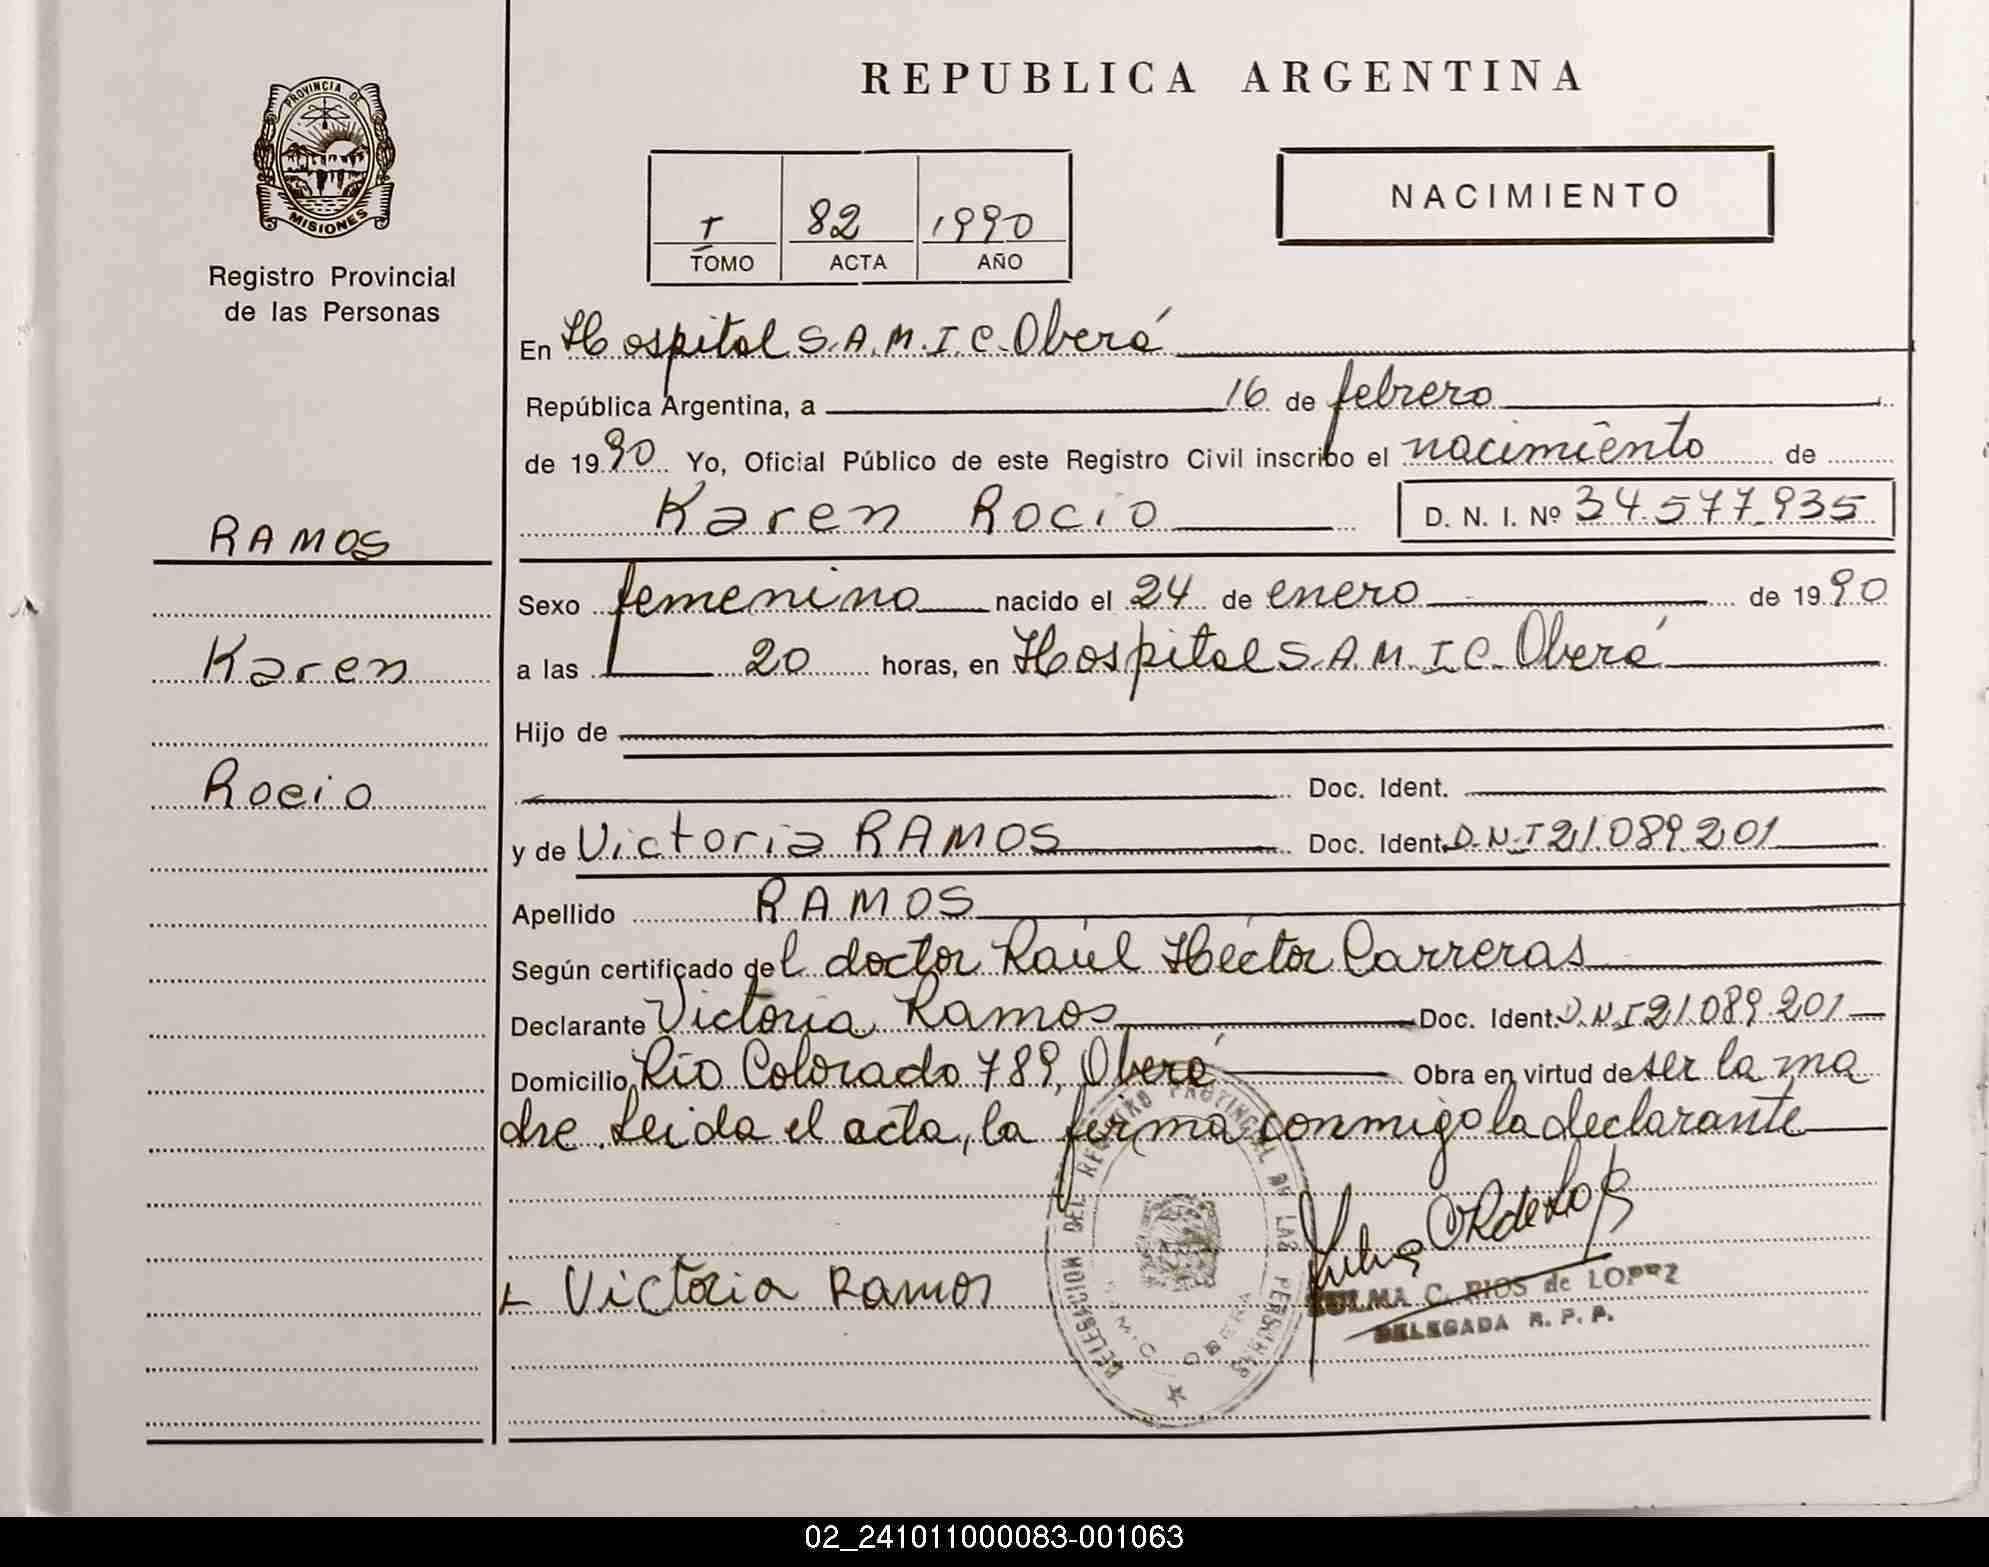 REPUBLICA ARGENTINA
PROVINCIA DE
MISIONES
Registro Provincial
de las Personas
NACIMIENTO
I 82 1990
TOMO ACTA AÑO
En Hospital S.A.M.I.C. Oberá
República Argentina, a 16 de febrero
de 1990 Yo, Oficial Público de este Registro Civil inscribo el nacimiento de
Karen Rocio D. N. I. Nº 34.577.935
RAMOS
Karen
Rocio
Sexo femenino nacido el 24 de enero de 1990
a las 20 horas, en Hospital S.A.M.I.C. Oberá
Hijo de
Doc. Ident.
y de Victoria RAMOS Doc. Ident. D.N.I 21.089.201
Apellido RAMOS
Según certificado del doctor Raúl Héctor Carreras
Declarante Victoria Ramos Doc. Ident. D.N.I 21.089.201
Domicilio Río Colorado 789, Oberá Obra en virtud de ser la ma
dre. Leida el acta, la firma conmigo la declarante
Victoria Ramos
DELEGACION DEL REGISTRO PROVINCIAL DE LAS PERSONAS
OBERA
ZULMA C. RIOS de LOPEZ
DELEGADA R. P. P.
02_241011000083-001063